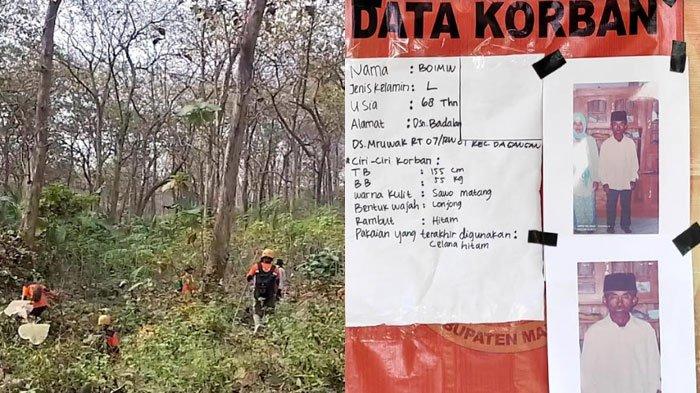 DATA KORBAN
Nama : BOIMIN
Jenis Kelamin : L
Usia : 68 Thn
Alamat : Dsn. Badalan
Ds. Mruwak RT 07/RW 01 KEC DAGANGAN
* Ciri-Ciri Korban :
TB : 155 cm
BB : 55 Kg
warna kulit : Sawo matang
Bentuk wajah : Lonjong
Rambut : Hitam
Pakaian yang terakhir digunakan :
Celana hitam
BUPATEN MA